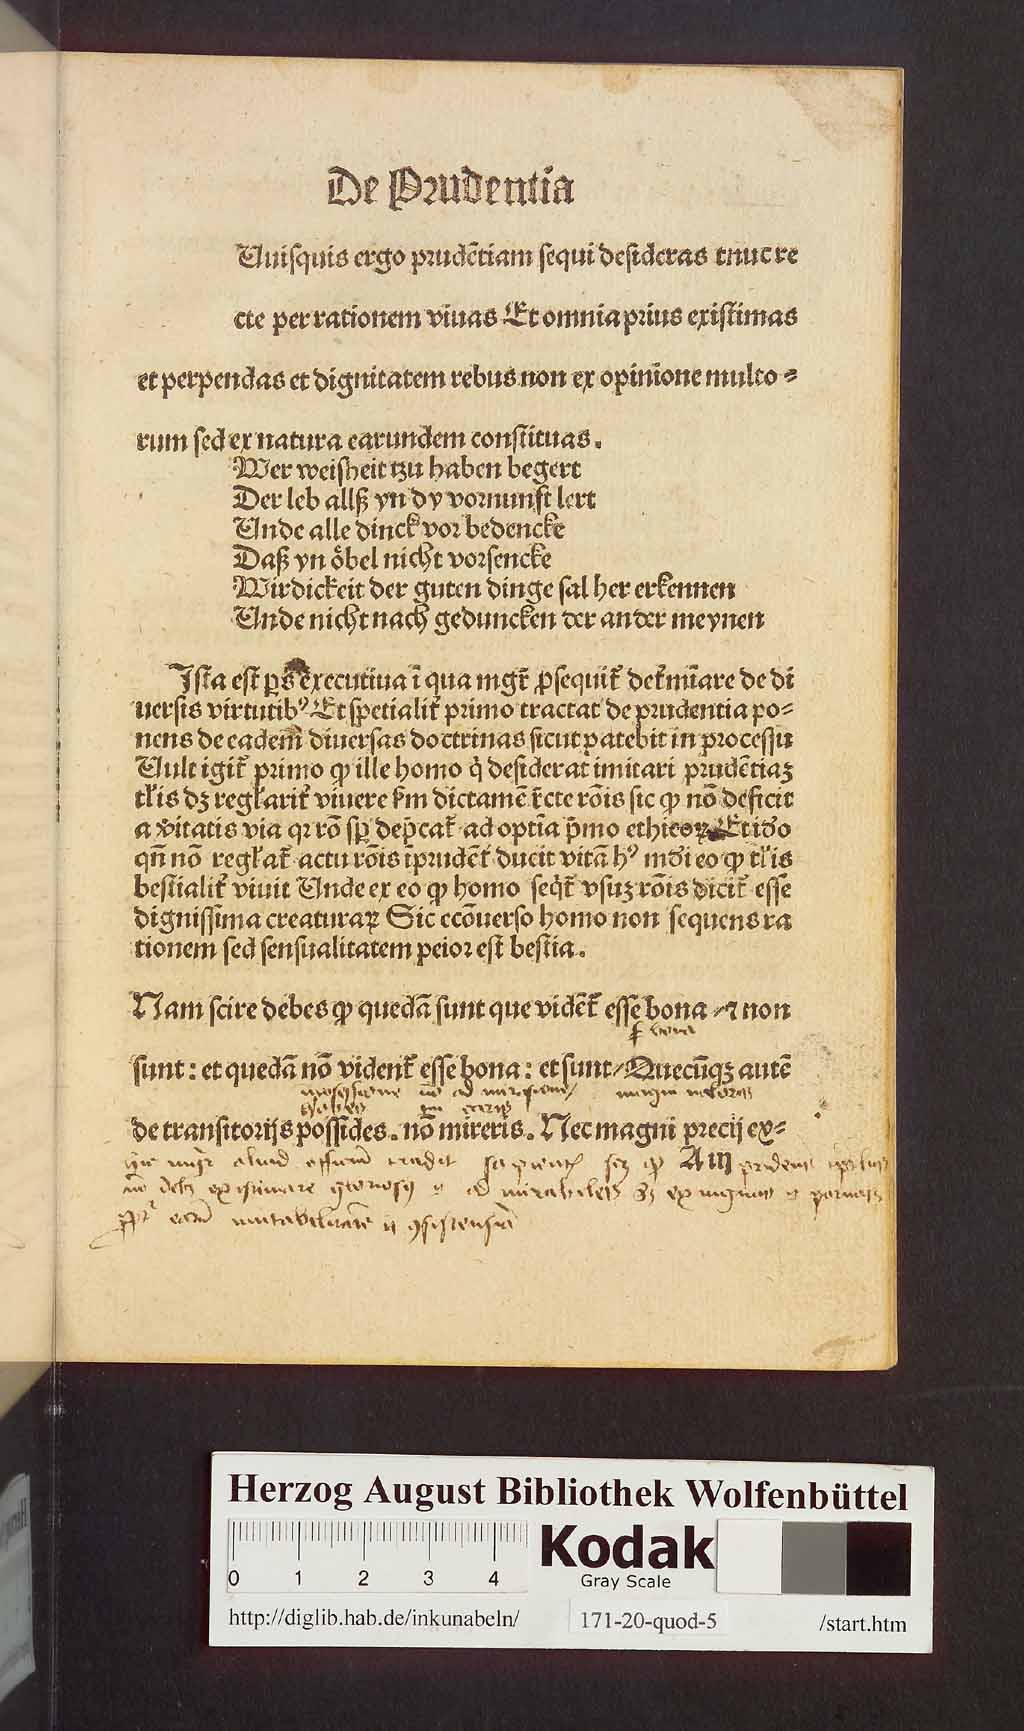 De Prudentia
Quisquis ergo prudētiam sequi desideras tnuc re
cte per rationem viuas Et omnia prius existimas
et perpendas et dignitatem rebus non ex opinione multo⸗
rum sed ex natura earundem constituas.
Wer weisheit tzu haben begert
Der leb allß yn dy vornunft lert
Unde alle dinck vor bedencke
Daß yn öbel nicht vorsencke
Wirdickeit der guten dinge sal her erkennen
Unde nicht nach geduncken der ander meynen
Ista est ꝑs executiua ī qua mgr̄ ꝓsequit̄ det̄mīare de di
uersis virtutibꝰ Et spetialit̄ primo tractat de prudentia po⸗
nens de eadem diuersas doctrinas sicut patebit in processu
Uult igit̄ primo ꝙ ille homo q̇ desiderat imitari prudētiaꝫ
tl̄is dꝫ regl̄arit̄ viuere ẜm dictamē r̄cte rōis sic ꝙ nō deficit
a v̄itatis via qꝛ rō sꝑ dep̄cat̄ ad optīa p̄mo ethicoꝝ Et iđo
qn̄ nō regl̄at̄ actu rōis īprudēt̄ ducit vitā hꝰ mōi eo ꝙ tl̄is
bestialit̄ viuit Unde ex eo ꝙ homo seqt̄ vsuꝫ rōis dicit̄ esse
dignissima creaturaꝝ Sic ecōuerso homo non sequens ra
tionem sed sensualitatem peior est bestia.
Nam scire debes ꝙ quedā sunt que vidēt̄ esse bona ⁊ non
bona
sunt: et quedā nō vident̄ esse bona: et sunt/ Quecūqꝫ autē
de transitorijs possides. nō mireris. Nec magni precij ex⸗
aliud tradit ꝙ prudens
existimare
Herzog August Bibliothek Wolfenbüttel
0 1 2 3 4
Kodak
Gray Scale
http://diglib.hab.de/inkunabeln/ 171-20-quod-5 /start.htm